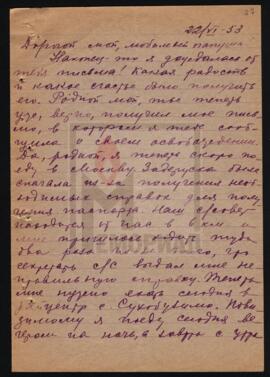 22/VI-53
Дорогой мой, любимый папуша!
Наконец-то я дождалась от
тебя письма! Какая радость
и какое счастье было получить
его. Родной мой, ты теперь
уже, верно, получил мое пись-
мо, в котором я тебе сооб-
щила о своем освобождении.
Да, родной, я теперь скоро по-
еду в Москву. Задержка была
сначала из-за получения необ-
ходимых справок для полу-
чения паспорта. Наш с/совет
находится от нас в км и
мне пришлось ходить туда
два раза из-за того, что
секретарь с/с выдал мне не-
правильную справку. Теперь
мне нужно ехать сегодня в
центр с. Сухобузимо. Пови-
димому я поеду сегодня ве-
чером на ночь, а завтра с утра